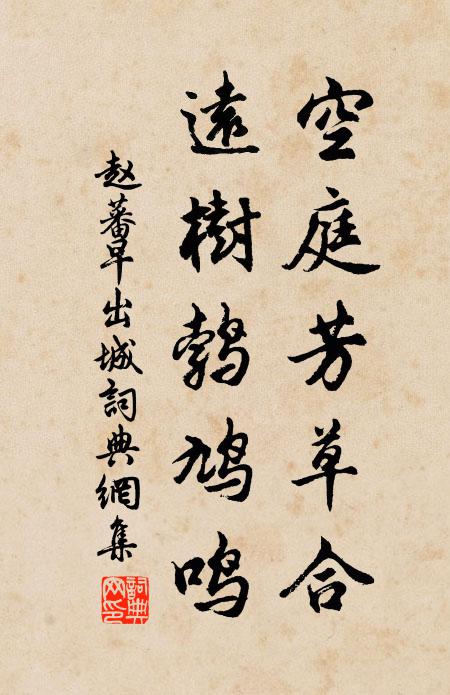 空庭芳草合
遠樹鹁鸠鸣
赵蕃早出城詞典網集
詞典
网印